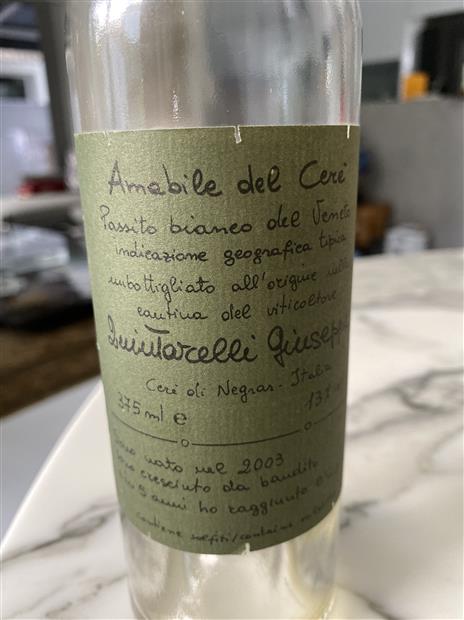 Amabile del Cerè
Passito bianco del Veneto
indicazione geografica tipica
imbottigliato all'origine nella
cantina del viticoltore
Quintarelli Giuseppe
Cerè di Negrar - Italia
375 ml e 13%
Sono nato nel 2003
cresciuto da bandito
anni ho raggiunto
Contiene solfiti/contains